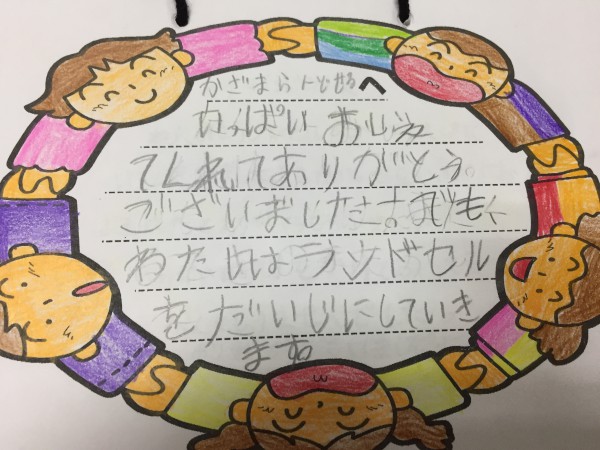 かざまらんどせるへ
いっぱい おしえ
てくれてありがとう。
ございました
わたしはランドセル
をだいじにしていき
ます。